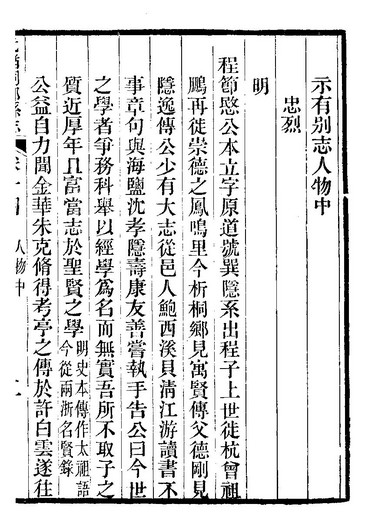 示有别志人物中
忠烈
明
程節愍公本立字原道號巽隱系出程子上世徙杭曾祖
鵬再徙崇德之鳳鳴里今析桐鄉見寓賢傳父德剛見
隱逸傳公少有大志從邑人鮑西溪貝淸江游讀書不
事章句與海鹽沈孝隱壽康友善嘗執手告公曰今世
之學者爭務科舉以經學爲名而無實吾所不取子之
質近厚年且富當志於聖賢之學明史本傳作太祖語
今從兩浙名賢錄
公益自力聞金華朱克脩得考亭之傳於許白雲遂往
人物中